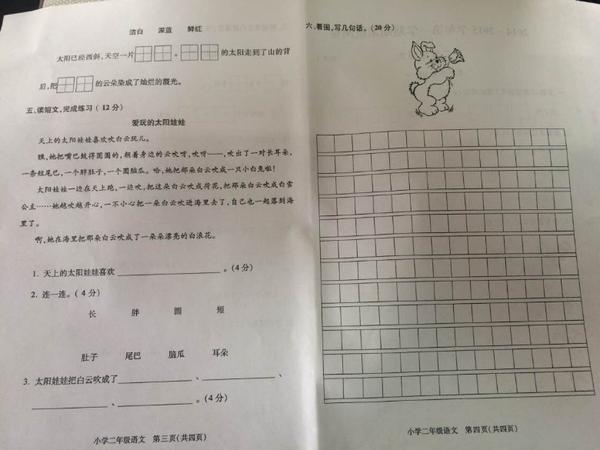 洁白 深蓝 鲜红
太阳已经西斜,天空一片 的太阳走到了山的背
后,把 的云朵染成了灿烂的霞光。
五、读短文,完成练习(12分)
爱玩的太阳娃娃
天上的太阳娃娃喜欢吹白云玩儿。
瞧,她把嘴巴鼓得圆圆的,朝着身边的云吹呀,吹呀——,吹出了一对长耳朵,
一条短尾巴,一个胖肚子,一个圆脑瓜。哈,她把那朵白云吹成一只小白兔啦!
太阳娃娃一边在天上跑,一边吹,把这朵白云吹成荷花,把那朵白云吹成白雪
公主……她越吹越开心,一不小心把一朵白云吹进海里去了,自己也一起落到海
里了。
啊,她在海里把那朵白云吹成了一朵朵漂亮的白浪花。
1. 天上的太阳娃娃喜欢 。(4分)
2. 连一连。(4分)
长 胖 圆 短
肚子 尾巴 脑瓜 耳朵
3. 太阳娃娃把白云吹成了 、 、
、 。(4分)
小学二年级语文 第三页(共四页)
六、看图,写几句话。(20分)
小学二年级语文 第四页(共四页)